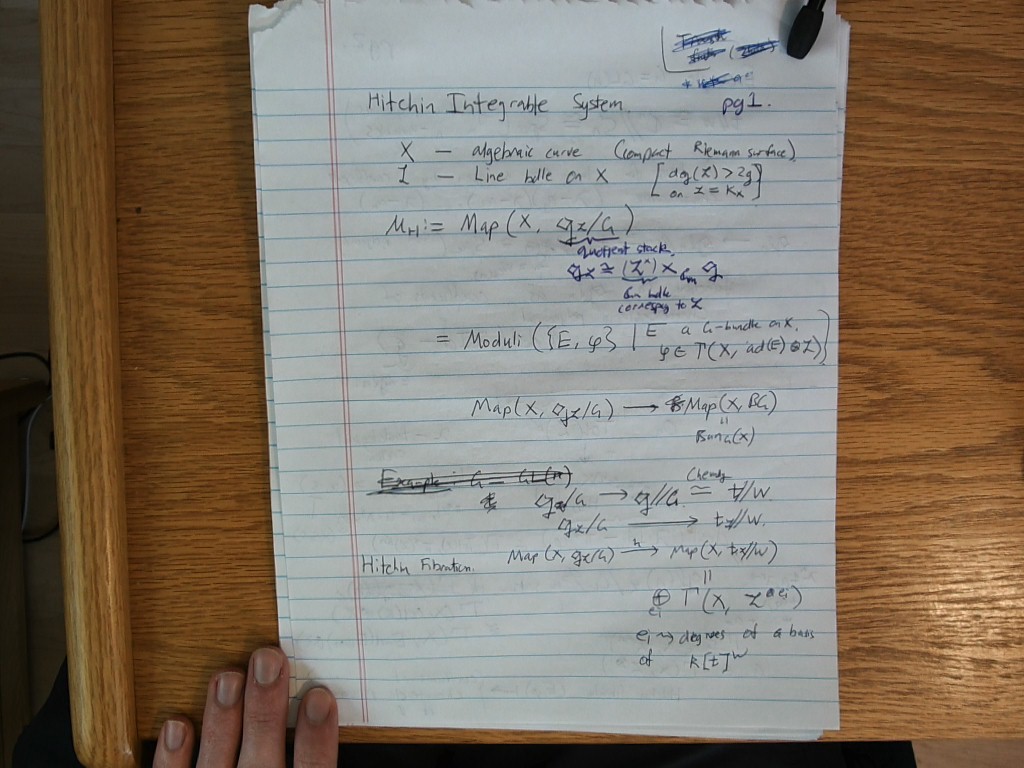 Hitchin Integrable System. pg 1.
X — algebraic curve (compact Riemann surface)
ℒ — Line bdle on X [deg(ℒ) > 2g
or ℒ = K_X]
M_H := Map(X, 𝔤_ℒ/G)
quotient stack.
𝔤_ℒ ≅ (ℒ^×) ×_{𝔾_m} 𝔤
𝔾_m bdle
correspg to ℒ
= Moduli ({E, φ} | E a G-bundle on X.
φ ∈ Γ(X, ad(E) ⊗ ℒ))
Map(X, 𝔤_ℒ/G) → Map(X, BG)
=
Bun_G(X)
Example: G = GL(n)
Chevalley
𝔤/G → 𝔤//G ≅ 𝔱//W
𝔤_ℒ/G → 𝔱_ℒ//W.
Hitchin Fibration. Map(X, 𝔤_ℒ/G) →^h Map(X, 𝔱_ℒ//W)
=
⊕_{e_i} Γ(X, ℒ^{⊗e_i})
e_i ⇝ degrees of a basis
of k[𝔱]^W